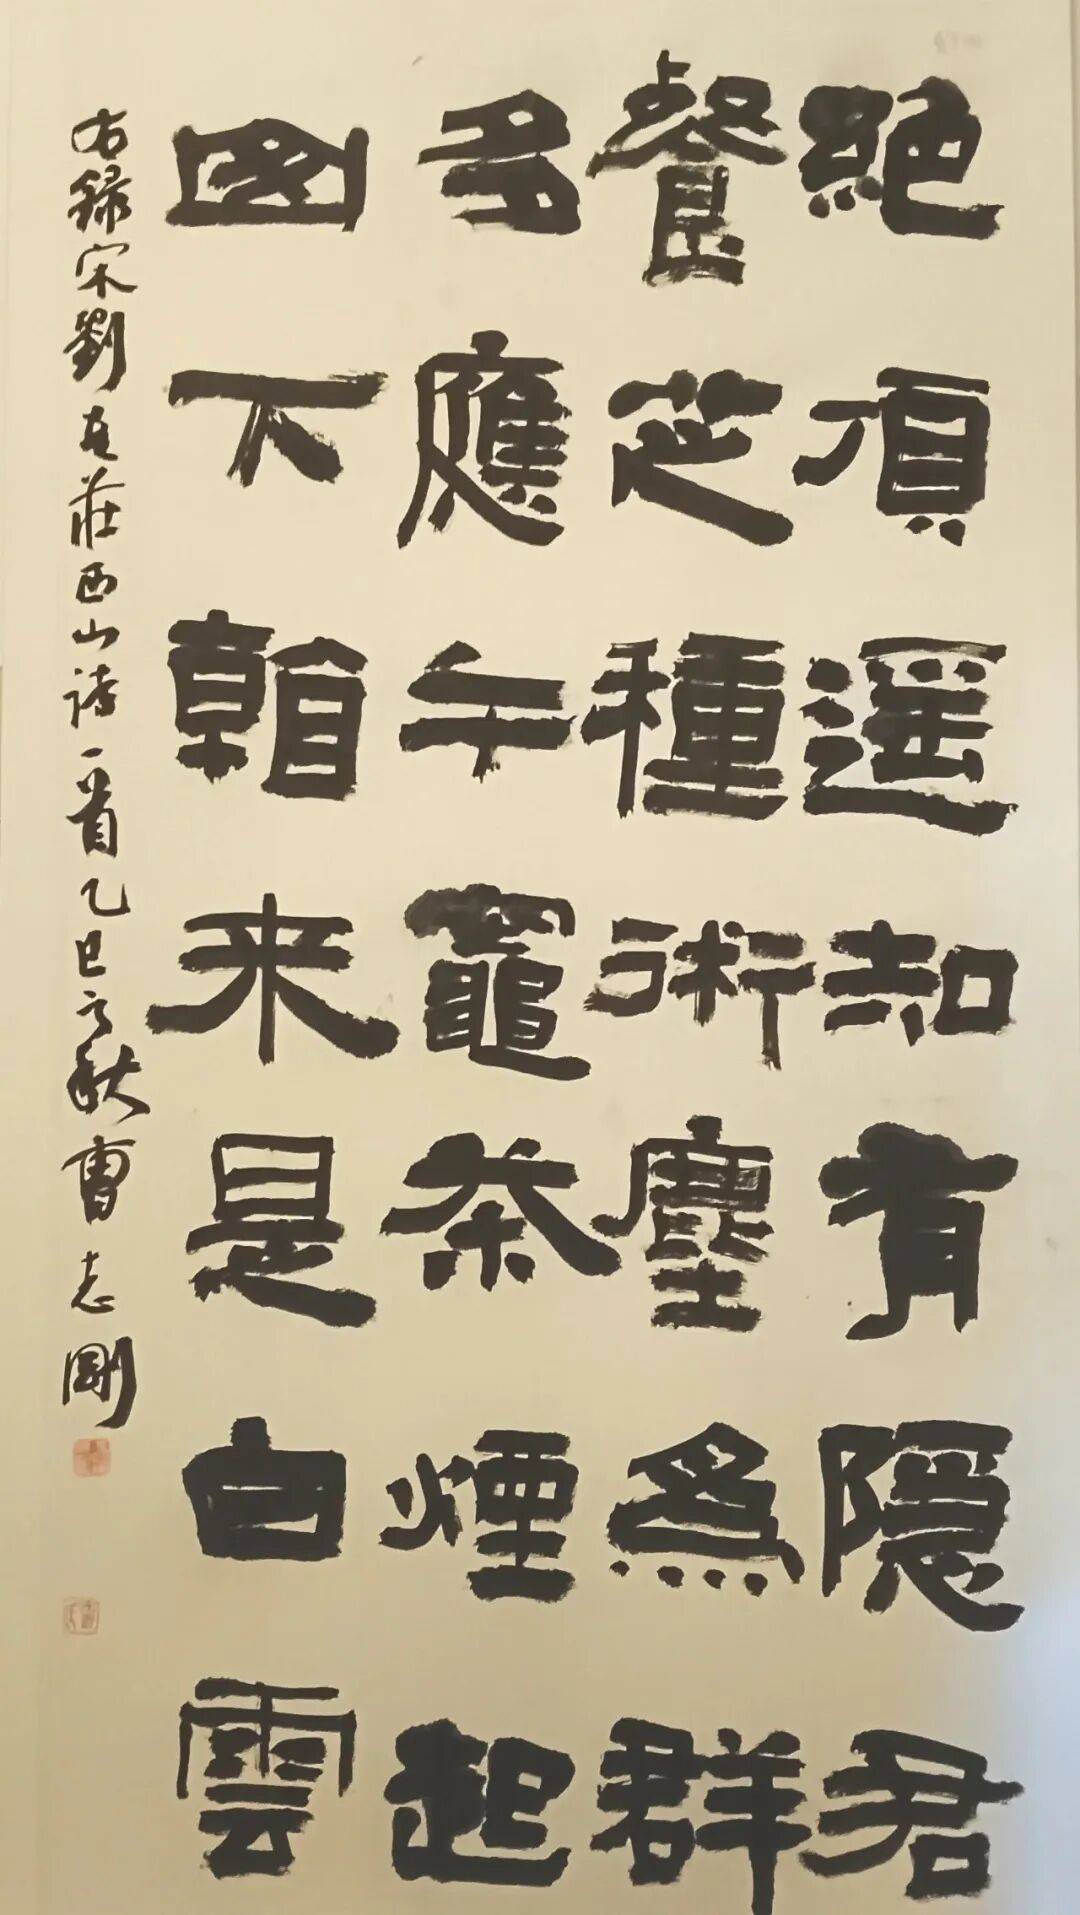 絶頂遥知有隱君
餐芝種術麈為群
多應午竈茶煙起
山下看来是白雲
右録宋劉克莊西山詩一首乙巳之秋曹志剛